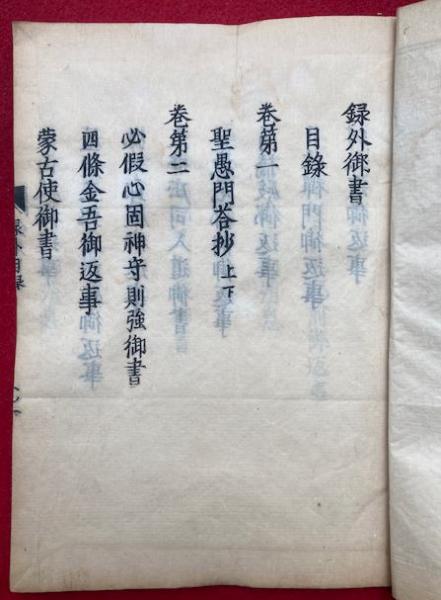 録外御書
目録
巻第一
聖愚門荅抄 上下
巻第二
必假心固神守則強御書
四條金吾御返事
蒙古使御書